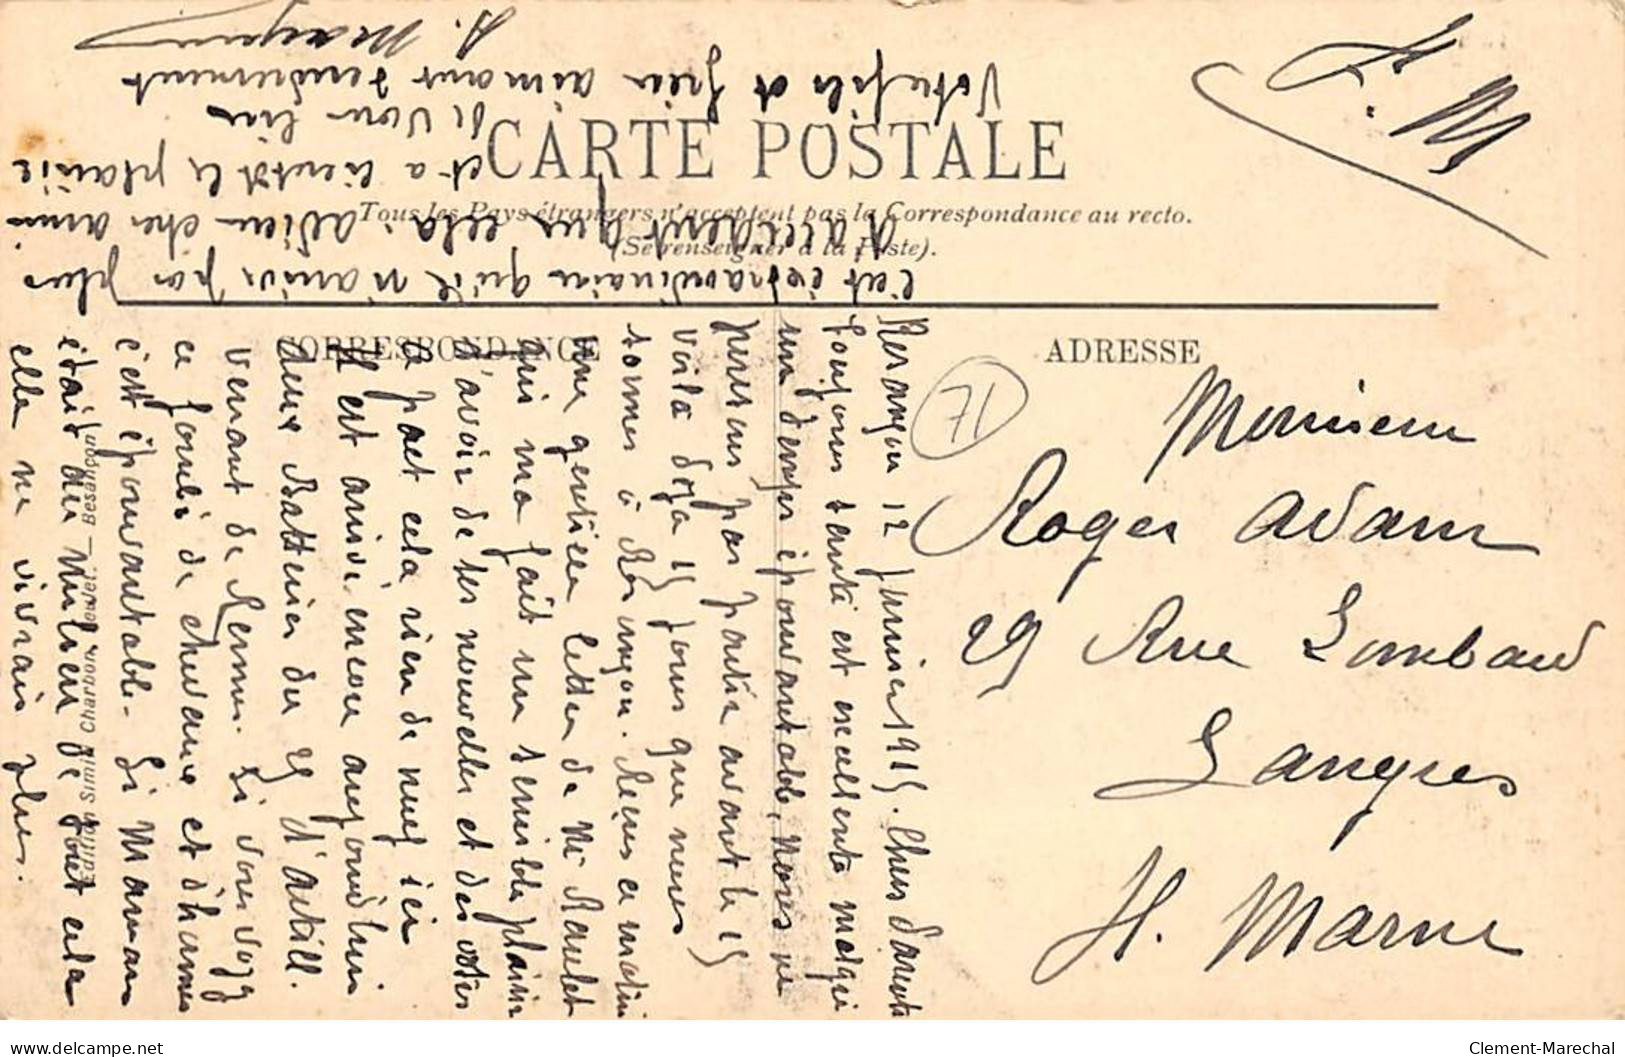 F. M
CARTE POSTALE
Tous les Pays étrangers n'acceptent pas la Correspondance au recto.
(Se renseigner à la Poste).
CORRESPONDANCE
ADRESSE
71
Monsieur
Roger Adam
29 Rue Lombard
Langres
H. Marne
12 Janvier 1915. Chers Parents
Toujours santé est excellente malgré
un temps épouvantable, nous ne
pensons pas partir avant le 15
voilà déjà 15 jours que nous
sommes à Reçu ce matin
une gentille lettre de Me
qui m'a fait un sensible plaisir
d'avoir de tes nouvelles et des votres
a part cela rien de neuf ici
Il est arrivé encore aujourd'hui
deux Batteries du 25 d'artill.
venant de Rennes. Si vous voyez
ce fourbi de chevaux et d'hommes
c'est épouvantable. Si Maman
était au milieu de tout cela
elle ne vivrait plus.
c'est extraordinaire qu'il n'arrive pas plus
d'accident que cela. adieu chers amis
et a bientôt le plaisir
de vous lire
Votre fils et frère aimant tendrement
A.
Edition Simili Charbon - Besançon
Clement-Marechal
delcampe.net